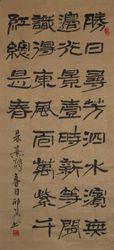 勝日尋芳泗水濱無
邊光景壹時新等閒
識得東風面萬紫千
紅總是春
朱熹詩春日